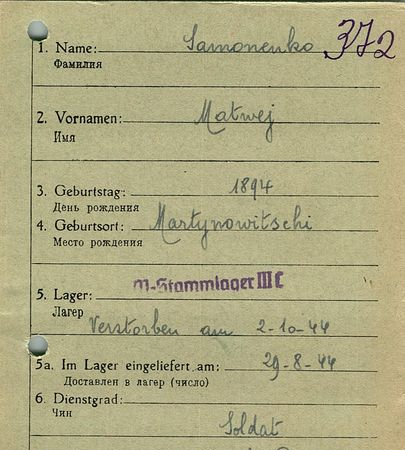 372
1. Name: Samonenko
Фамилия
2. Vornamen: Matwej
Имя
3. Geburtstag: 1894
День рождения
4. Geburtsort: Martynowitschi
Место рождения
M-Stammlager III C
5. Lager:
Лагер
Verstorben am 2-10-44
5a. Im Lager eingeliefert am: 29-8-44
Доставлен в лагер (число)
6. Dienstgrad:
Чин
Soldat